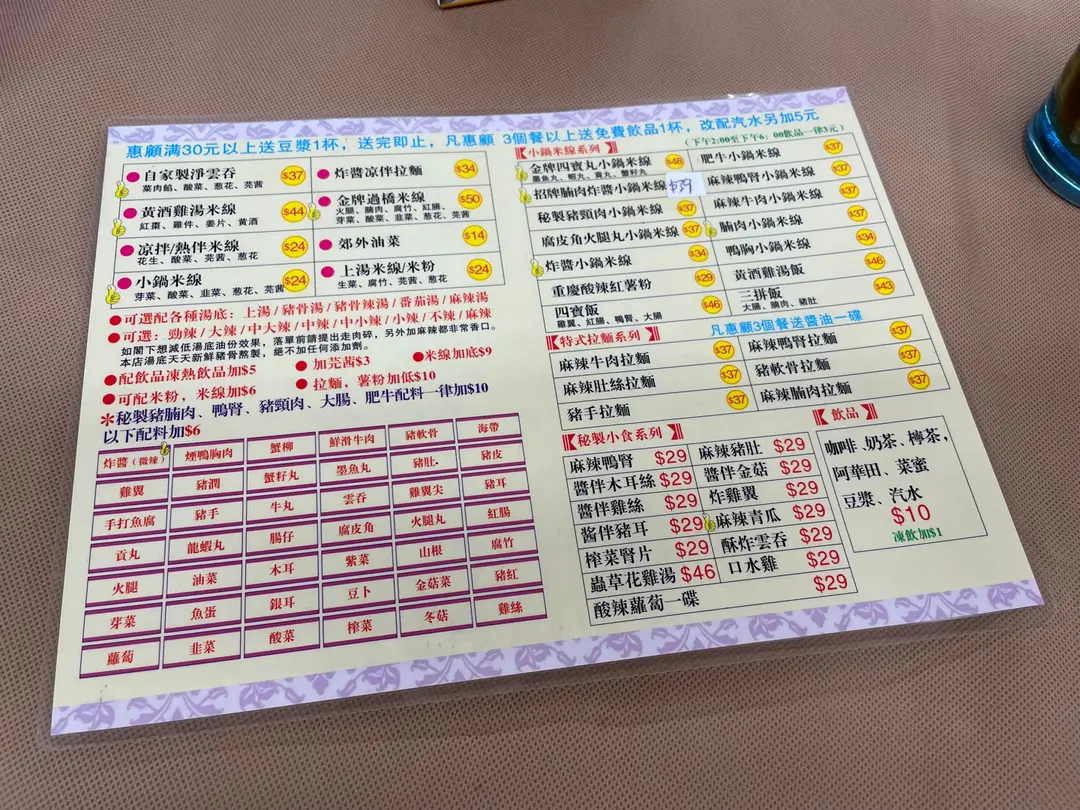 惠顧满30元以上送豆漿1杯，送完即止，凡惠顧 3個餐以上送免費飲品1杯，改配汽水另加5元
（下午2:00至下午6：00飲品一律3元）
自家製淨雲吞 $37
菜肉餡、酸菜、葱花、芫茜
炸醬凉伴拉麵 $34
黃酒雞湯米線 $44
紅棗、雞件、姜片、黃酒
金牌過橋米線 $50
火腿、腩肉、腐竹、紅腸、
芽菜、酸菜、韭菜、葱花、芫茜
凉拌/熱伴米線 $24
花生、酸菜、芫茜、葱花
郊外油菜 $14
小鍋米線 $24
芽菜、酸菜、韭菜、葱花、芫茜
上湯米線/米粉 $24
生菜、腐竹、芫茜、葱花
可選配各種湯底：上湯/豬骨湯/豬骨辣湯/番茄湯/麻辣湯
可選：勁辣/大辣/中大辣/中辣/中小辣/小辣/不辣/麻辣
如閣下想減低湯底油份效果，落單前請提出走肉碎，另外加麻辣都非常香口。
本店湯底天天新鮮豬骨熬製，絕不加任何添加劑。
配飲品凍熱飲品加$5
加芫茜$3
米線加底$9
可配米粉，米線加$6
拉麵，薯粉加低$10
＊秘製豬腩肉、鴨腎、豬頸肉、大腸、肥牛配料一律加$10
以下配料加$6
炸醬（微辣） 煙鴨胸肉 蟹柳 鮮滑牛肉 豬軟骨 海帶
雞翼 豬潤 蟹籽丸 墨魚丸 豬肚 豬皮
手打魚腐 豬手 牛丸 雲吞 雞翼尖 豬耳
貢丸 龍蝦丸 腸仔 腐皮角 火腿丸 紅腸
火腿 油菜 木耳 紫菜 山根 腐竹
芽菜 魚蛋 銀耳 豆卜 金菇菜 豬紅
蘿蔔 韭菜 酸菜 榨菜 冬菇 雞絲
小鍋米線系列
金牌四寶丸小鍋米線 $48
墨魚丸、蝦丸、貢丸、蟹籽丸
肥牛小鍋米線 $37
招牌腩肉炸醬小鍋米線 $39
麻辣鴨腎小鍋米線 $37
秘製豬頸肉小鍋米線 $37
麻辣牛肉小鍋米線 $37
腐皮角火腿丸小鍋米線 $37
腩肉小鍋米線 $37
炸醬小鍋米線 $34
鴨胸小鍋米線 $34
重慶酸辣紅薯粉 $29
黃酒雞湯飯 $46
四寶飯 $46
雞翼、紅腸、鴨腎、大腸
三拼飯 $43
大腸、腩肉、豬肚
特式拉麵系列
凡惠顧3個餐送醬油一碟
麻辣牛肉拉麵 $37
麻辣鴨腎拉麵 $37
麻辣肚絲拉麵 $37
豬軟骨拉麵 $37
豬手拉麵 $37
麻辣腩肉拉麵 $37
秘製小食系列
麻辣鴨腎 $29
麻辣豬肚 $29
醬伴木耳絲 $29
醬伴金菇 $29
醬伴雞絲 $29
炸雞翼 $29
酱伴豬耳 $29
麻辣青瓜 $29
榨菜腎片 $29
酥炸雲吞 $29
蟲草花雞湯 $46
口水雞 $29
酸辣蘿蔔一碟 $29
飲品
咖啡、奶茶、檸茶，
阿華田、菜蜜
豆漿、汽水
$10
凍飲加$1